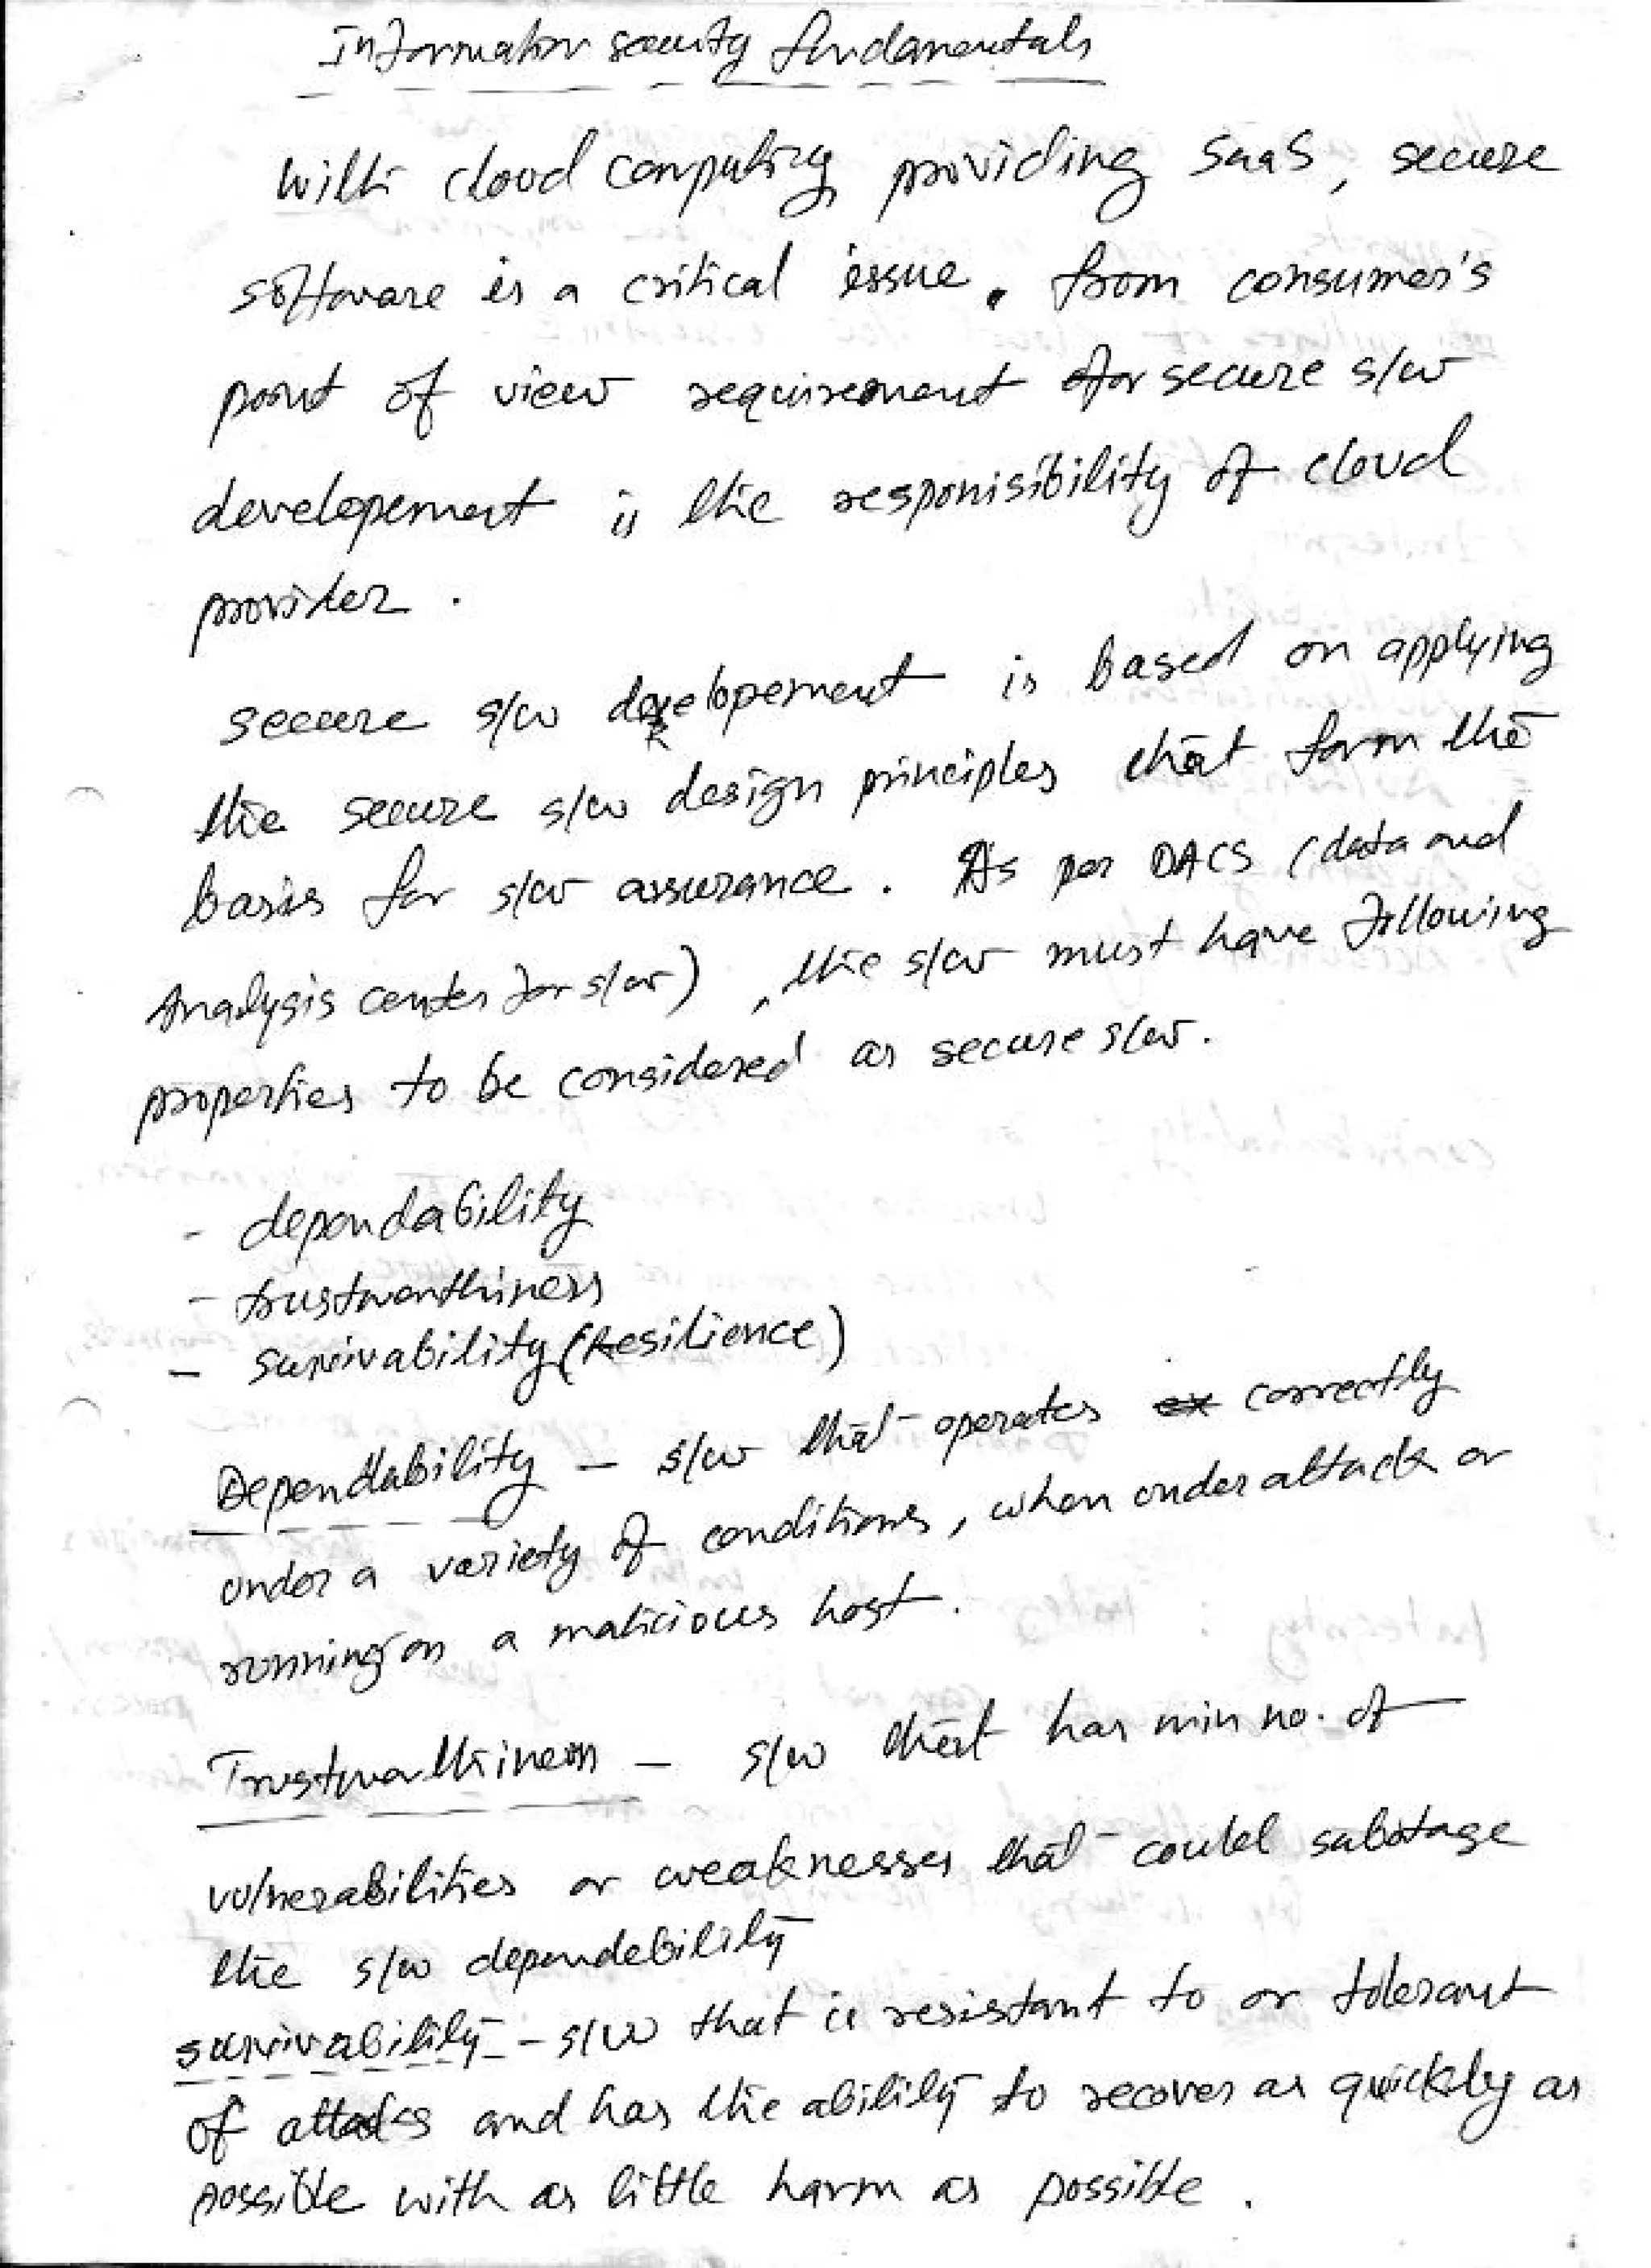 Information security fundamentals
With cloud computing providing SaaS, secure
software is a critical issue. from consumer's
point of view requirement for secure s/w
developement is the responisibility of cloud
provider.
secure s/w developement is based on applying
the secure s/w design principles that form the
basis for s/w assurance. As per DACS (data and
Analysis center for s/w), the s/w must have following
properties to be considered as secure s/w.
- dependability
- trustworthiness
- survivability (Resilience)
Dependability - s/w that operates correctly
under a variety of conditions, when under attack or
running on a malicious host.
Trustworthiness - s/w that has min no. of
vulnerabilities or weaknesses that could sabotage
the s/w dependebility
survivability - s/w that is resistant to or tolerant
of attacks and has the ability to recover as quickly as
possible with as little harm as possible.